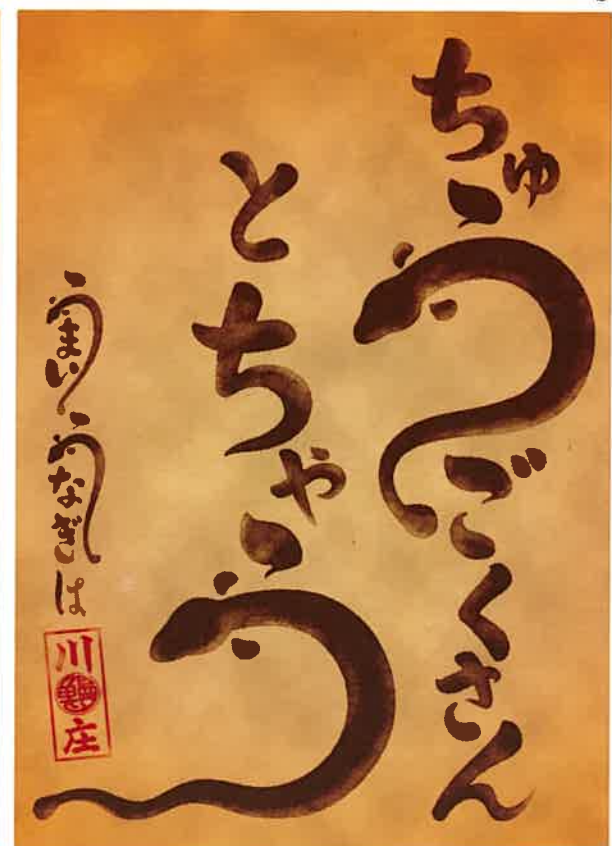 ちゅうごくさん
とちゃう
うまいうなぎは
川鰻庄